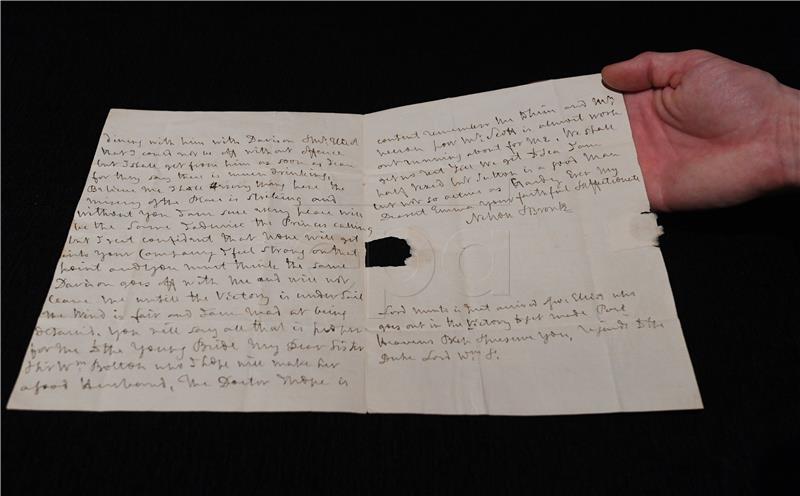 dining with him with Davison &
that I could not be off without offence
but I shall get from him as soon as I can
for they say there is much drinking,
Believe me I hate every thing here the
misery of the Place is striking and
without you I am sure every place will
be the same I admire the Princes calling
but I rest confident that None will get
into your Company I feel strong on that
point and you must think the same
Davison goes off with me and will not
leave me until the Victory is under sail
the Wind is fair and I am mad at being
detained. You will say all that is proper
for me to the Young Bride My Dear Sister
Sir Wm. Bolton who I hope will make her
a good Husband, the Doctor I hope is
content remember me to him and Mrs
poor Mr. Scott is almost work
out running about for me, We shall
get no rest till we get to Sea I am
half dead but Sutton is a good Man
but not so active as Hardy Ever My
Dearest Emma your faithful & Affectionate
Nelson & Bronte
Lord Minto is just arrived & George Elliot who
goes out in the Victory to get made Post
Heavens Bless & preserve you,
Duke Lord Wm. &c.
pa